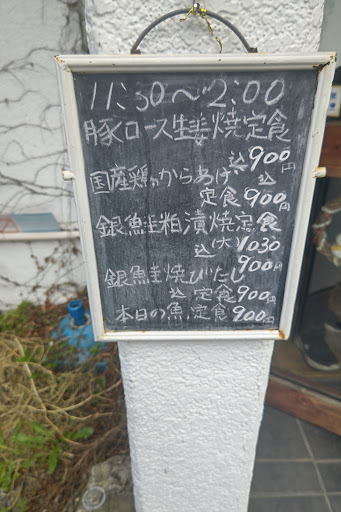 11:30〜2:00
豚ロース生姜焼定食
込900円
国産鶏のからあげ 込
定食900円
銀鮭粕漬焼定食
込(大)1030
900円
銀鮭焼びたし
込 定食900円
本日の魚定食900円